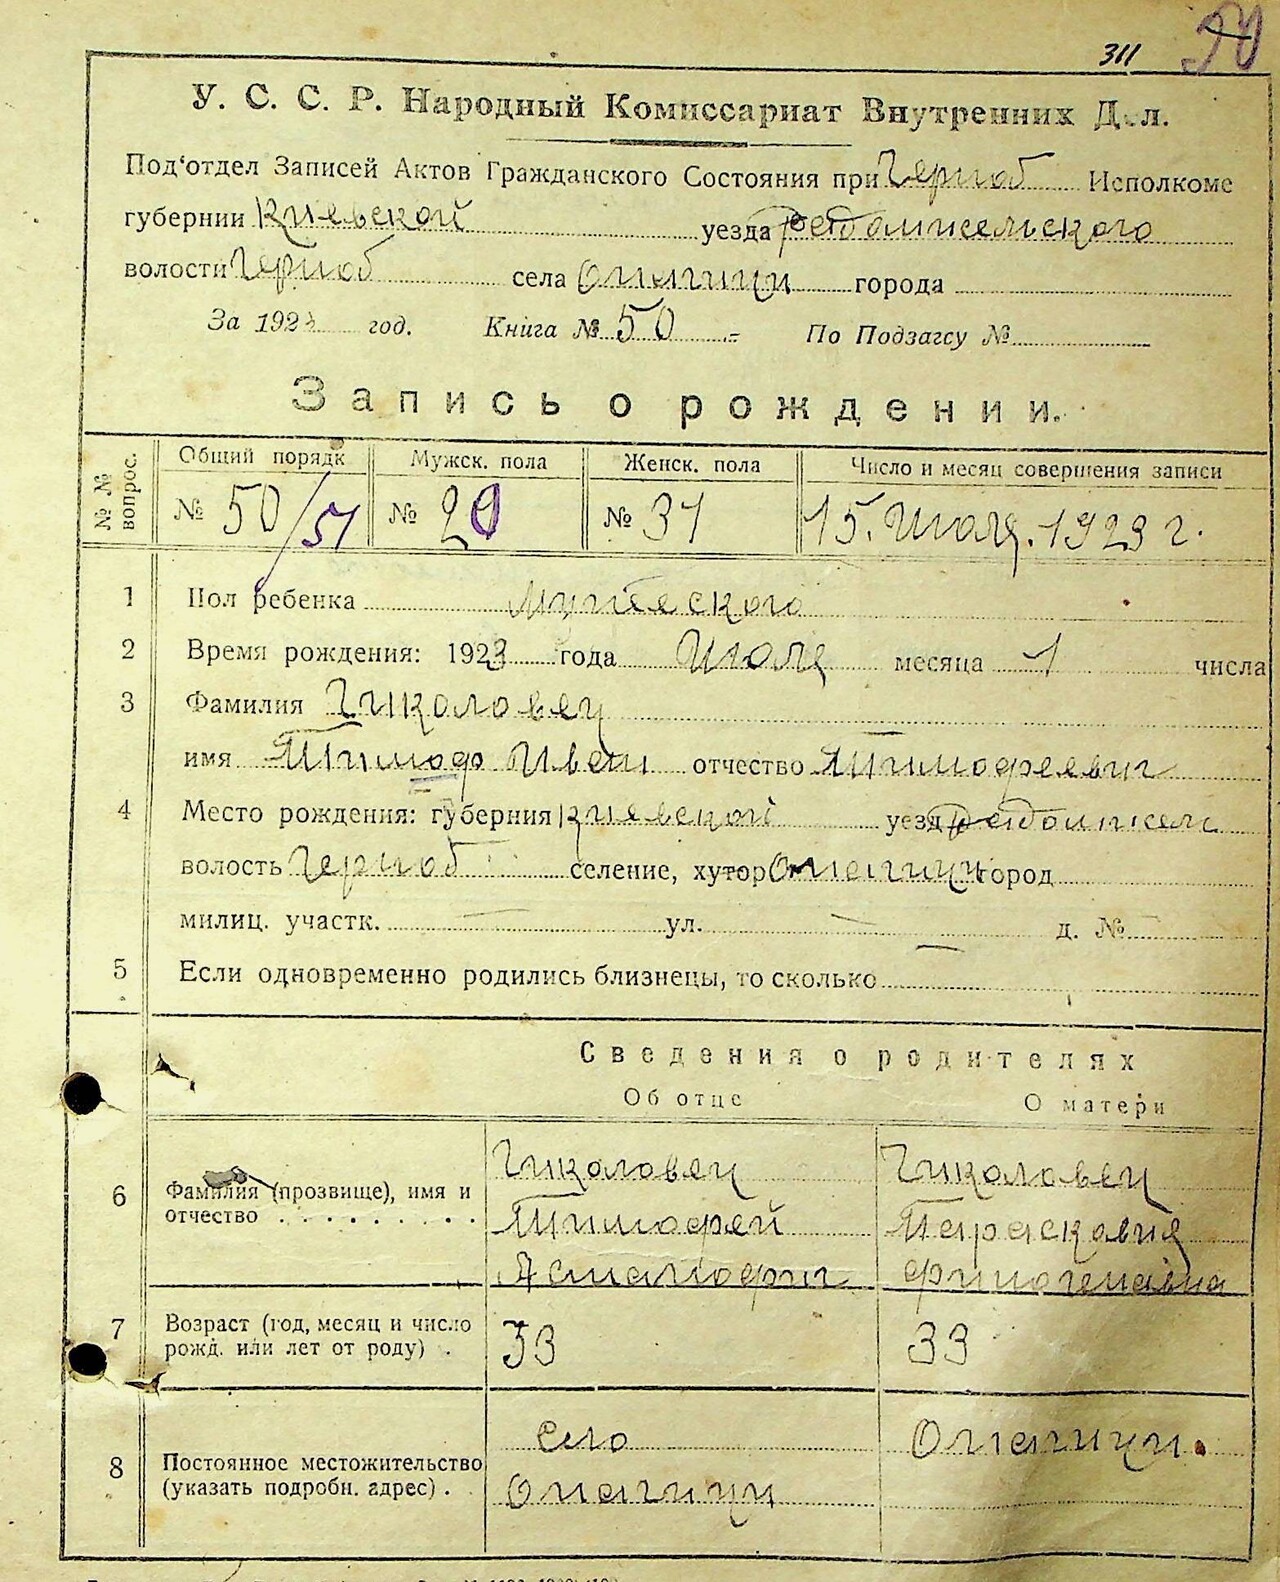 311 20
У. С. С. Р. Народный Комиссариат Внутренних Дел.
Под'отдел Записей Актов Гражданского Состояния при Черноб Исполкоме
губернии Киевской уезда Редомисельского
волости Черноб села Опачичи города
За 1923 год. Книга № 50 По Подзагсу №
Запись о рождении.
№ № вопрос. Общий порядк Мужск. пола Женск. пола Число и месяц совершения записи
№ 50/51 № 20 № 31 15. Июля. 1923 г.
1 Пол ребенка
2 Время рождения: 1923 года Июля месяца 1 числа
3 Фамилия Чиколовец
имя Тимоф Иван отчество Тимофеевич
4 Место рождения: губерния Киевской уезд
волость Черноб селение, хутор Опачичи город
милиц. участк. — ул. — д. № —
5 Если одновременно родились близнецы, то сколько —
Сведения о родителях
Об отце О матери
6 Фамилия (прозвище), имя и отчество . . . . . . . . .
Чиколовец Чиколовец
Тимофей Параскавия
7 Возраст (год, месяц и число рожд. или лет от роду) . 33 33
8 Постоянное местожительство (указать подробн. адрес) .
село Опачичи.
Опачичи